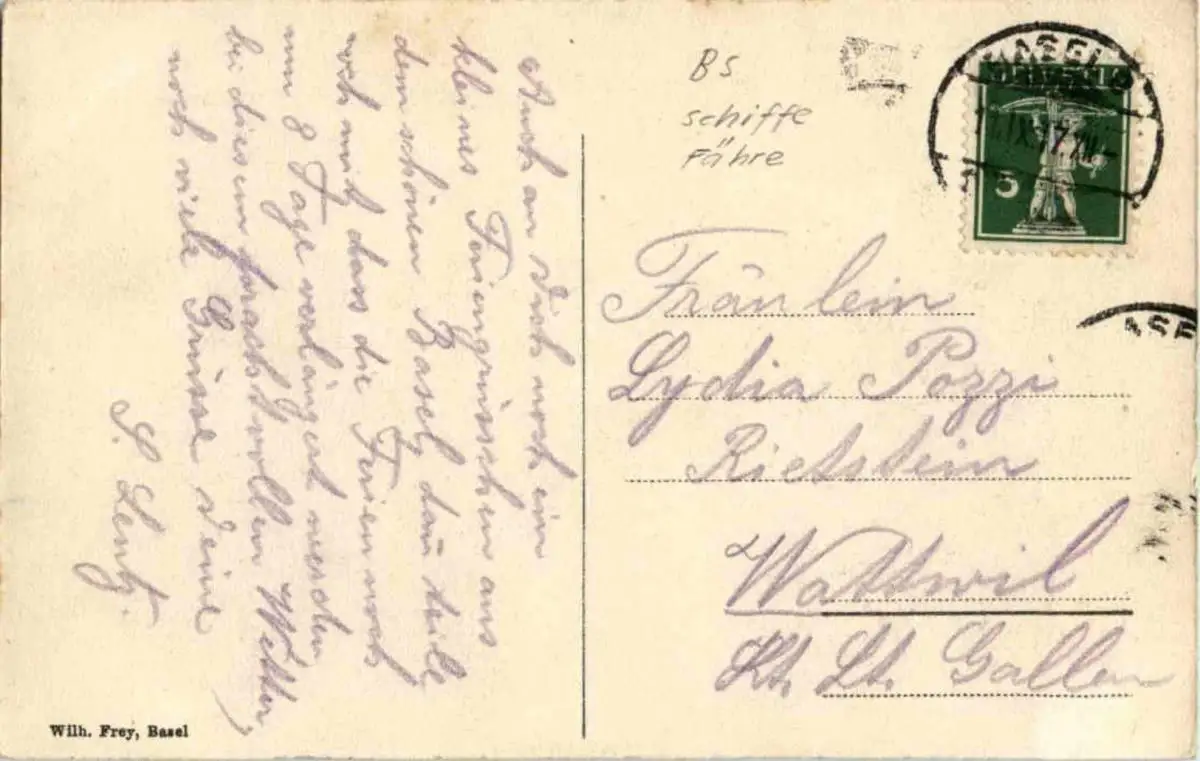 Auch an dich noch ein
kleines Feriengrüsschen aus
dem schönen Basel, dan teile
noch mit dass die Ferien noch
um 8 Tage verlängert werden
bei diesem prachtvollen Wetter,
noch viele Grüsse deine
S. Lentz.
BS
schiffe
Fähre
BASEL
HELVETIA
5
Fräulein
Lydia Pozzi
Rietstein
Wattwil
Kt. St. Gallen
ASE
Wilh. Frey, Basel